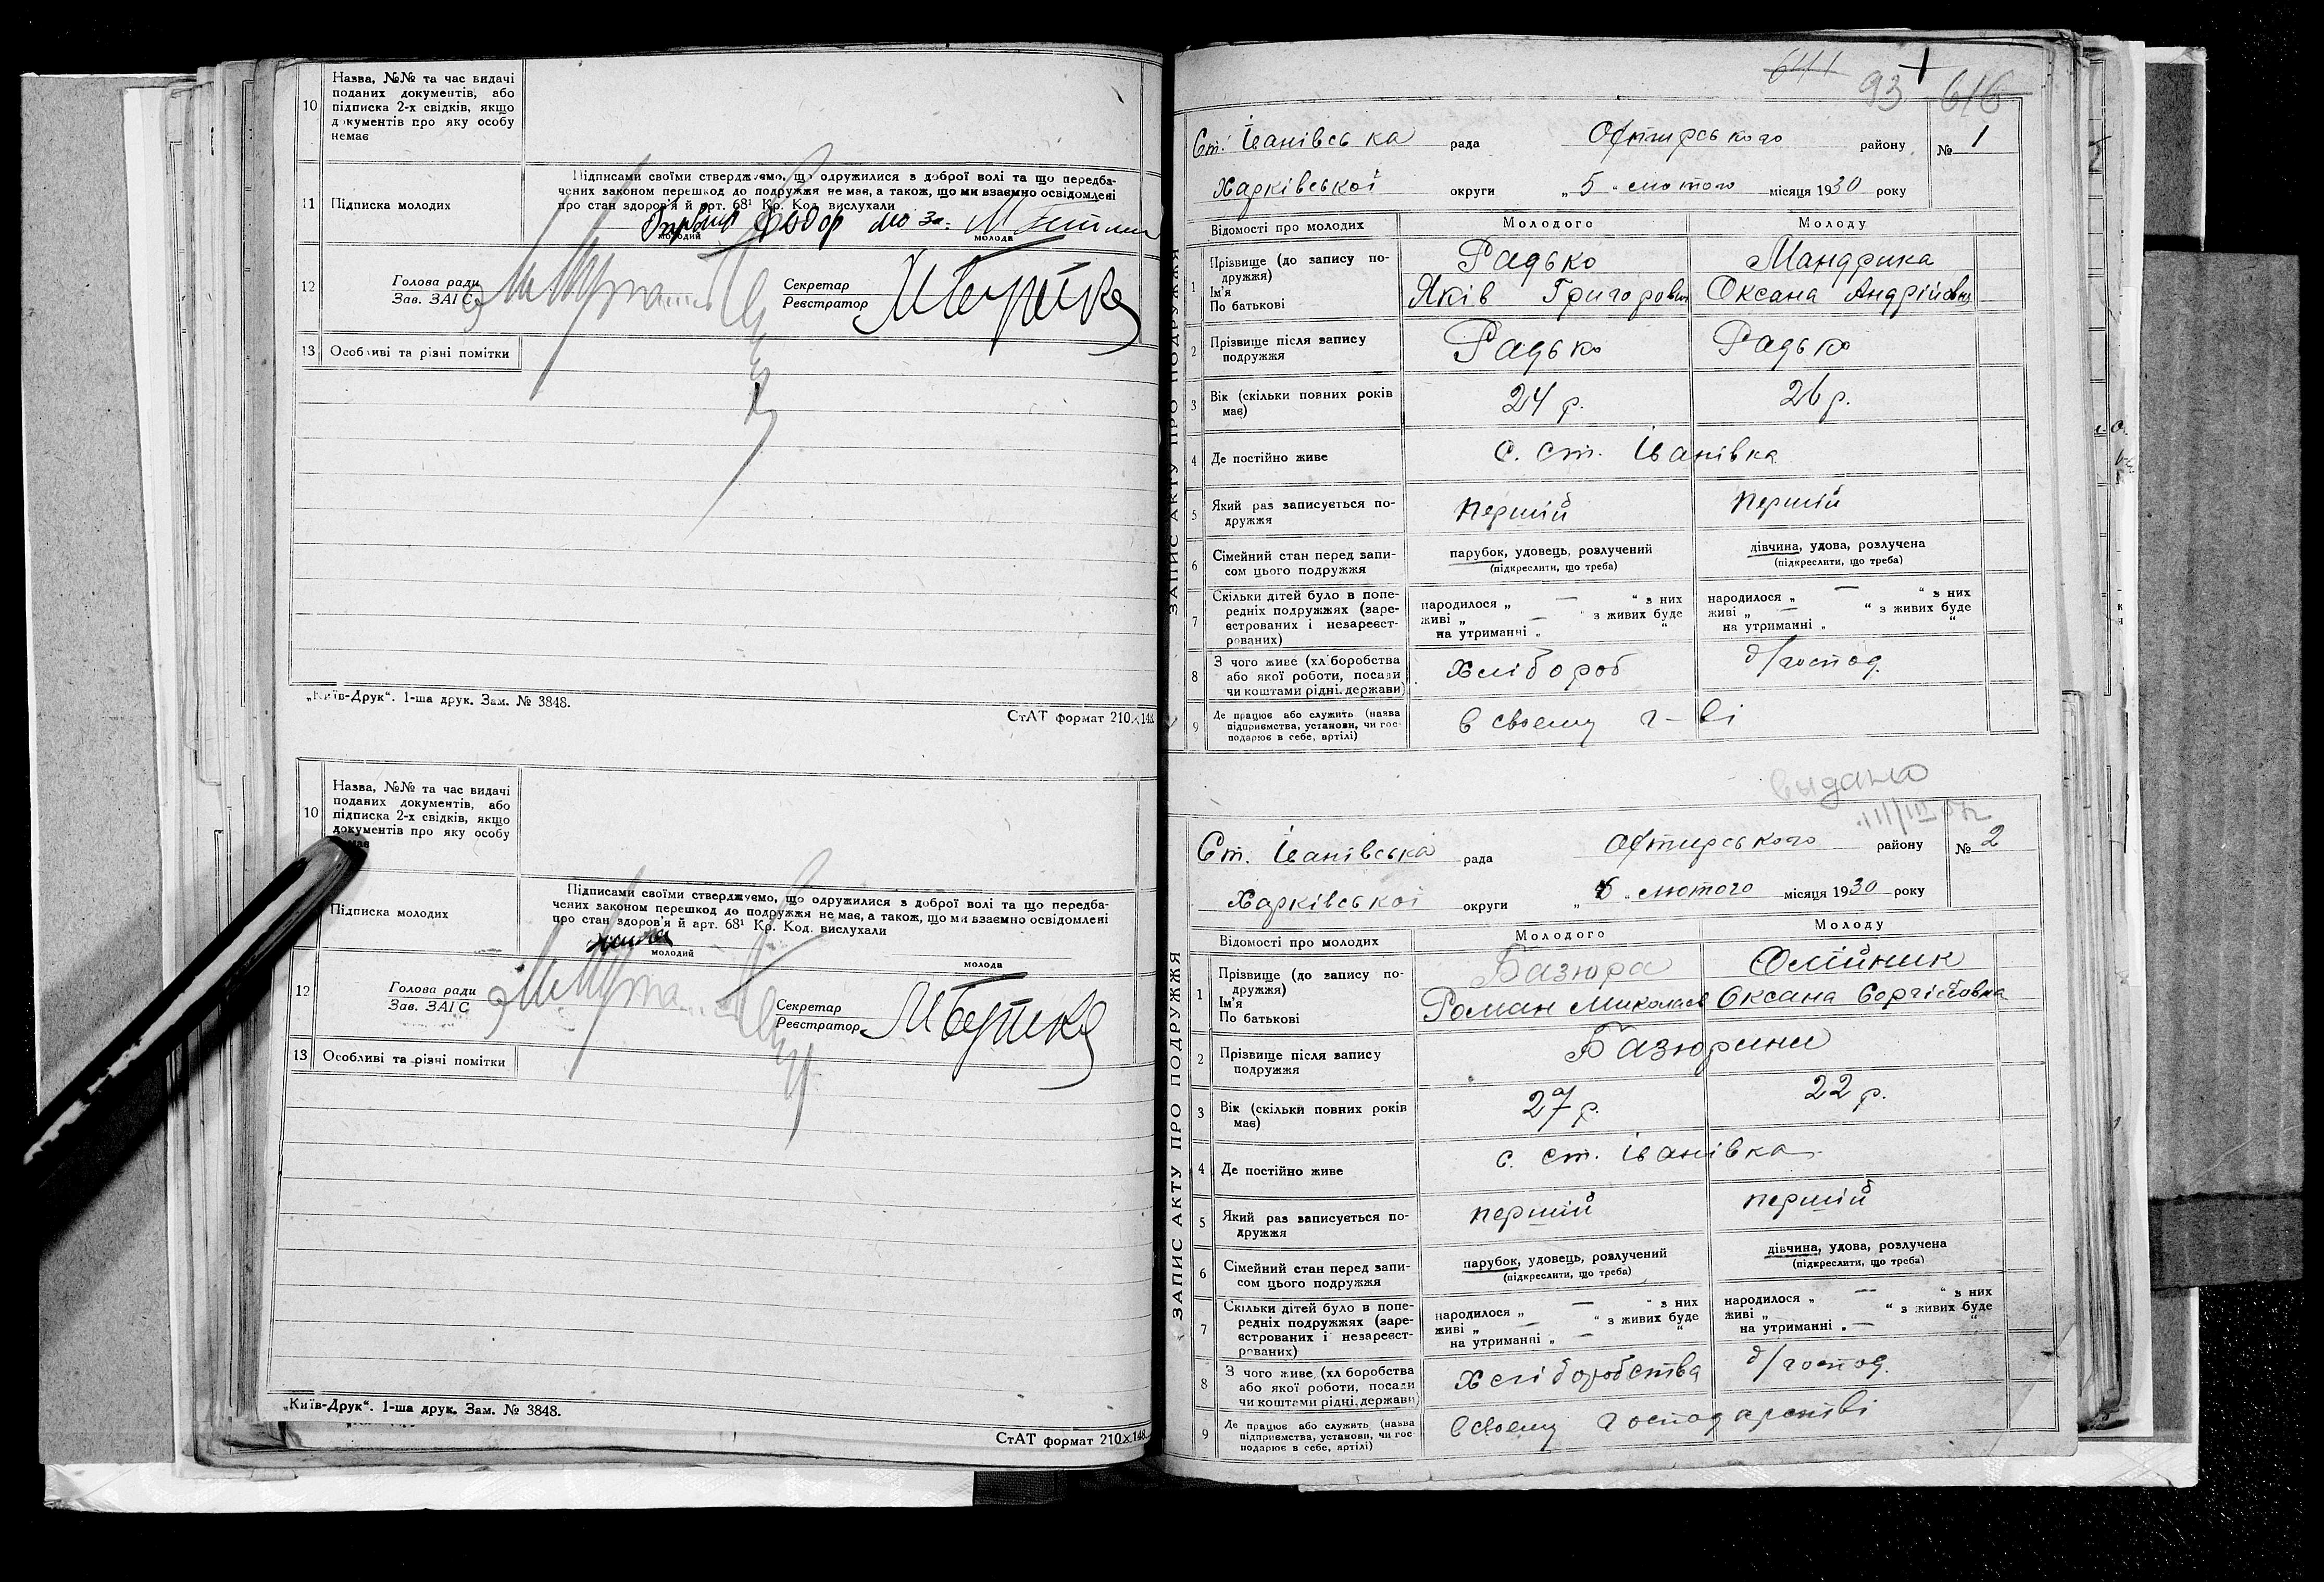 10
Назва, №№ та час видачі
поданих документів, або
підписка 2-х свідків, якщо
документів про яку особу
немає
11
Підписка молодих
Підписами своїми стверджуємо, що одружилися з доброї волі та що передба-
чених законом перешкод до подружжя не має, а також, що ми взаємно освідомлені
про стан здоров'я й арт. 68¹ Кр. Код. вислухали
Федор
молодий
молода
12
Голова ради
Зав. ЗАГС
Секретар
Реєстратор
13
Особливі та різні помітки
„Київ-Друк“. 1-ша друк. Зам. № 3848.
СтАТ формат 210×148.
10
Назва, №№ та час видачі
поданих документів, або
підписка 2-х свідків, якщо
документів про яку особу
Підписка молодих
Підписами своїми стверджуємо, що одружилися з доброї волі та що передба-
чених законом перешкод до подружжя не має, а також, що ми взаємно освідомлені
про стан здоров'я й арт. 68¹ Кр. Код. вислухали
молодий
молода
12
Голова ради
Зав. ЗАГС
Секретар
Реєстратор
13
Особливі та різні помітки
„Київ-Друк“. 1-ша друк. Зам. № 3848.
СтАТ формат 210×148.
641
93
616
ЗАПИС АКТУ ПРО ПОДРУЖЖЯ
Ст. Іванівська рада Охтирського району № 1
Харківської округи „5“ лютого місяця 1930 року
Відомості про молодих
Молодого
Молоду
1
Прізвище (до запису по-
дружжя)
Ім'я
По батькові
Радько
Яків Григорович
Мандрика
Оксана Андріївна
2
Прізвище після запису
подружжя
Радько
Радько
3
Вік (скільки повних років
має)
24 р.
26 р.
4
Де постійно живе
с. Ст. Іванівка
5
Який раз записується по-
дружжя
перший
перший
6
Сімейний стан перед запи-
сом цього подружжя
парубок, удовець, розлучений
(підкреслити, що треба)
дівчина, удова, розлучена
(підкреслити, що треба)
7
Скільки дітей було в попе-
редніх подружжях (заре-
єстрованих і незареєст-
рованих)
народилося „ — “ з них
живі „ — “ з живих буде
на утриманні „ “
народилося „ — “ з них
живі „ — “ з живих буде
на утриманні „ “
8
З чого живе (хліборобства
або якої роботи, посади
чи коштами рідні, держави)
Хлібороб
д/господ.
9
Де працює або служить (назва
підприємства, установи, чи гос-
подарює в себе, артілі)
в своему г-ві
выдано
ЗАПИС АКТУ ПРО ПОДРУЖЖЯ
Ст. Іванівська рада Охтирського району № 2
Харківської округи „6“ лютого місяця 1930 року
Відомості про молодих
Молодого
Молоду
1
Прізвище (до запису по-
дружжя)
Ім'я
По батькові
Базюра
Роман Миколаєв
Олійник
Оксана Сергієвна
2
Прізвище після запису
подружжя
Базюрини
3
Вік (скільки повних років
має)
27 р.
22 р.
4
Де постійно живе
с. Ст. Іванівка
5
Який раз записується по-
дружжя
перший
перший
6
Сімейний стан перед запи-
сом цього подружжя
парубок, удовець, розлучений
(підкреслити, що треба)
дівчина, удова, розлучена
(підкреслити, що треба)
7
Скільки дітей було в попе-
редніх подружжях (заре-
єстрованих і незареєст-
рованих)
народилося „ — “ з них
живі „ — “ з живих буде
на утриманні „ — “
народилося „ — “ з них
живі „ — “ з живих буде
на утриманні „ — “
8
З чого живе (хліборобства
або якої роботи, посади
чи коштами рідні, держави)
Хліборобства
д/господ.
9
Де працює або служить (назва
підприємства, установи, чи гос-
подарює в себе, артілі)
в своему господарстві